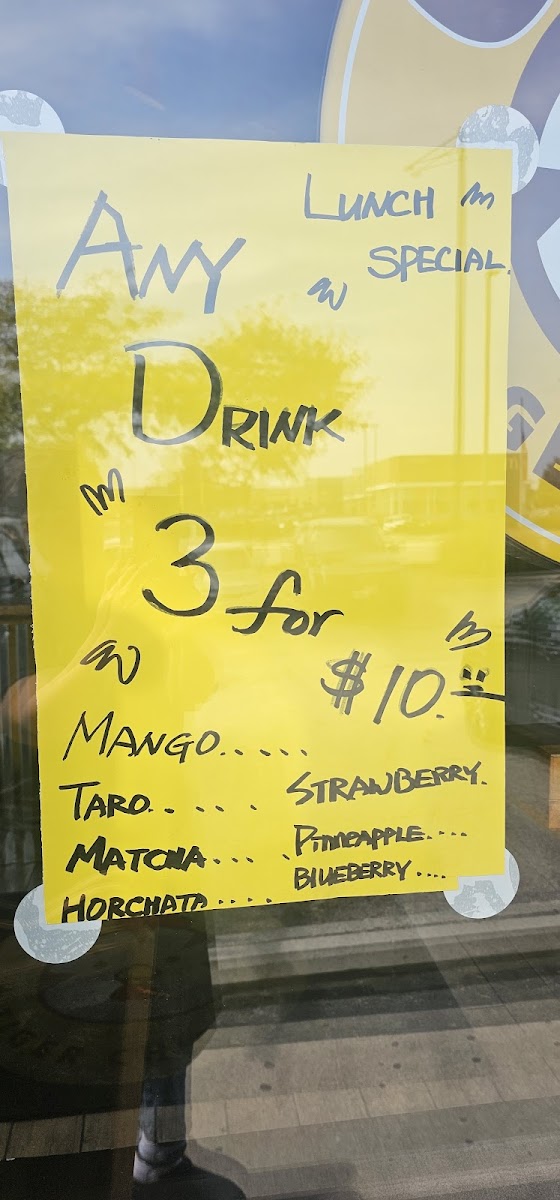 LUNCH
SPECIAL.
ANY
DRINK
3 for
$10.
MANGO.....
TARO.....
MATCHA....
HORCHATA....
STRAWBERRY.
PINNEAPPLE....
BLUEBERRY....